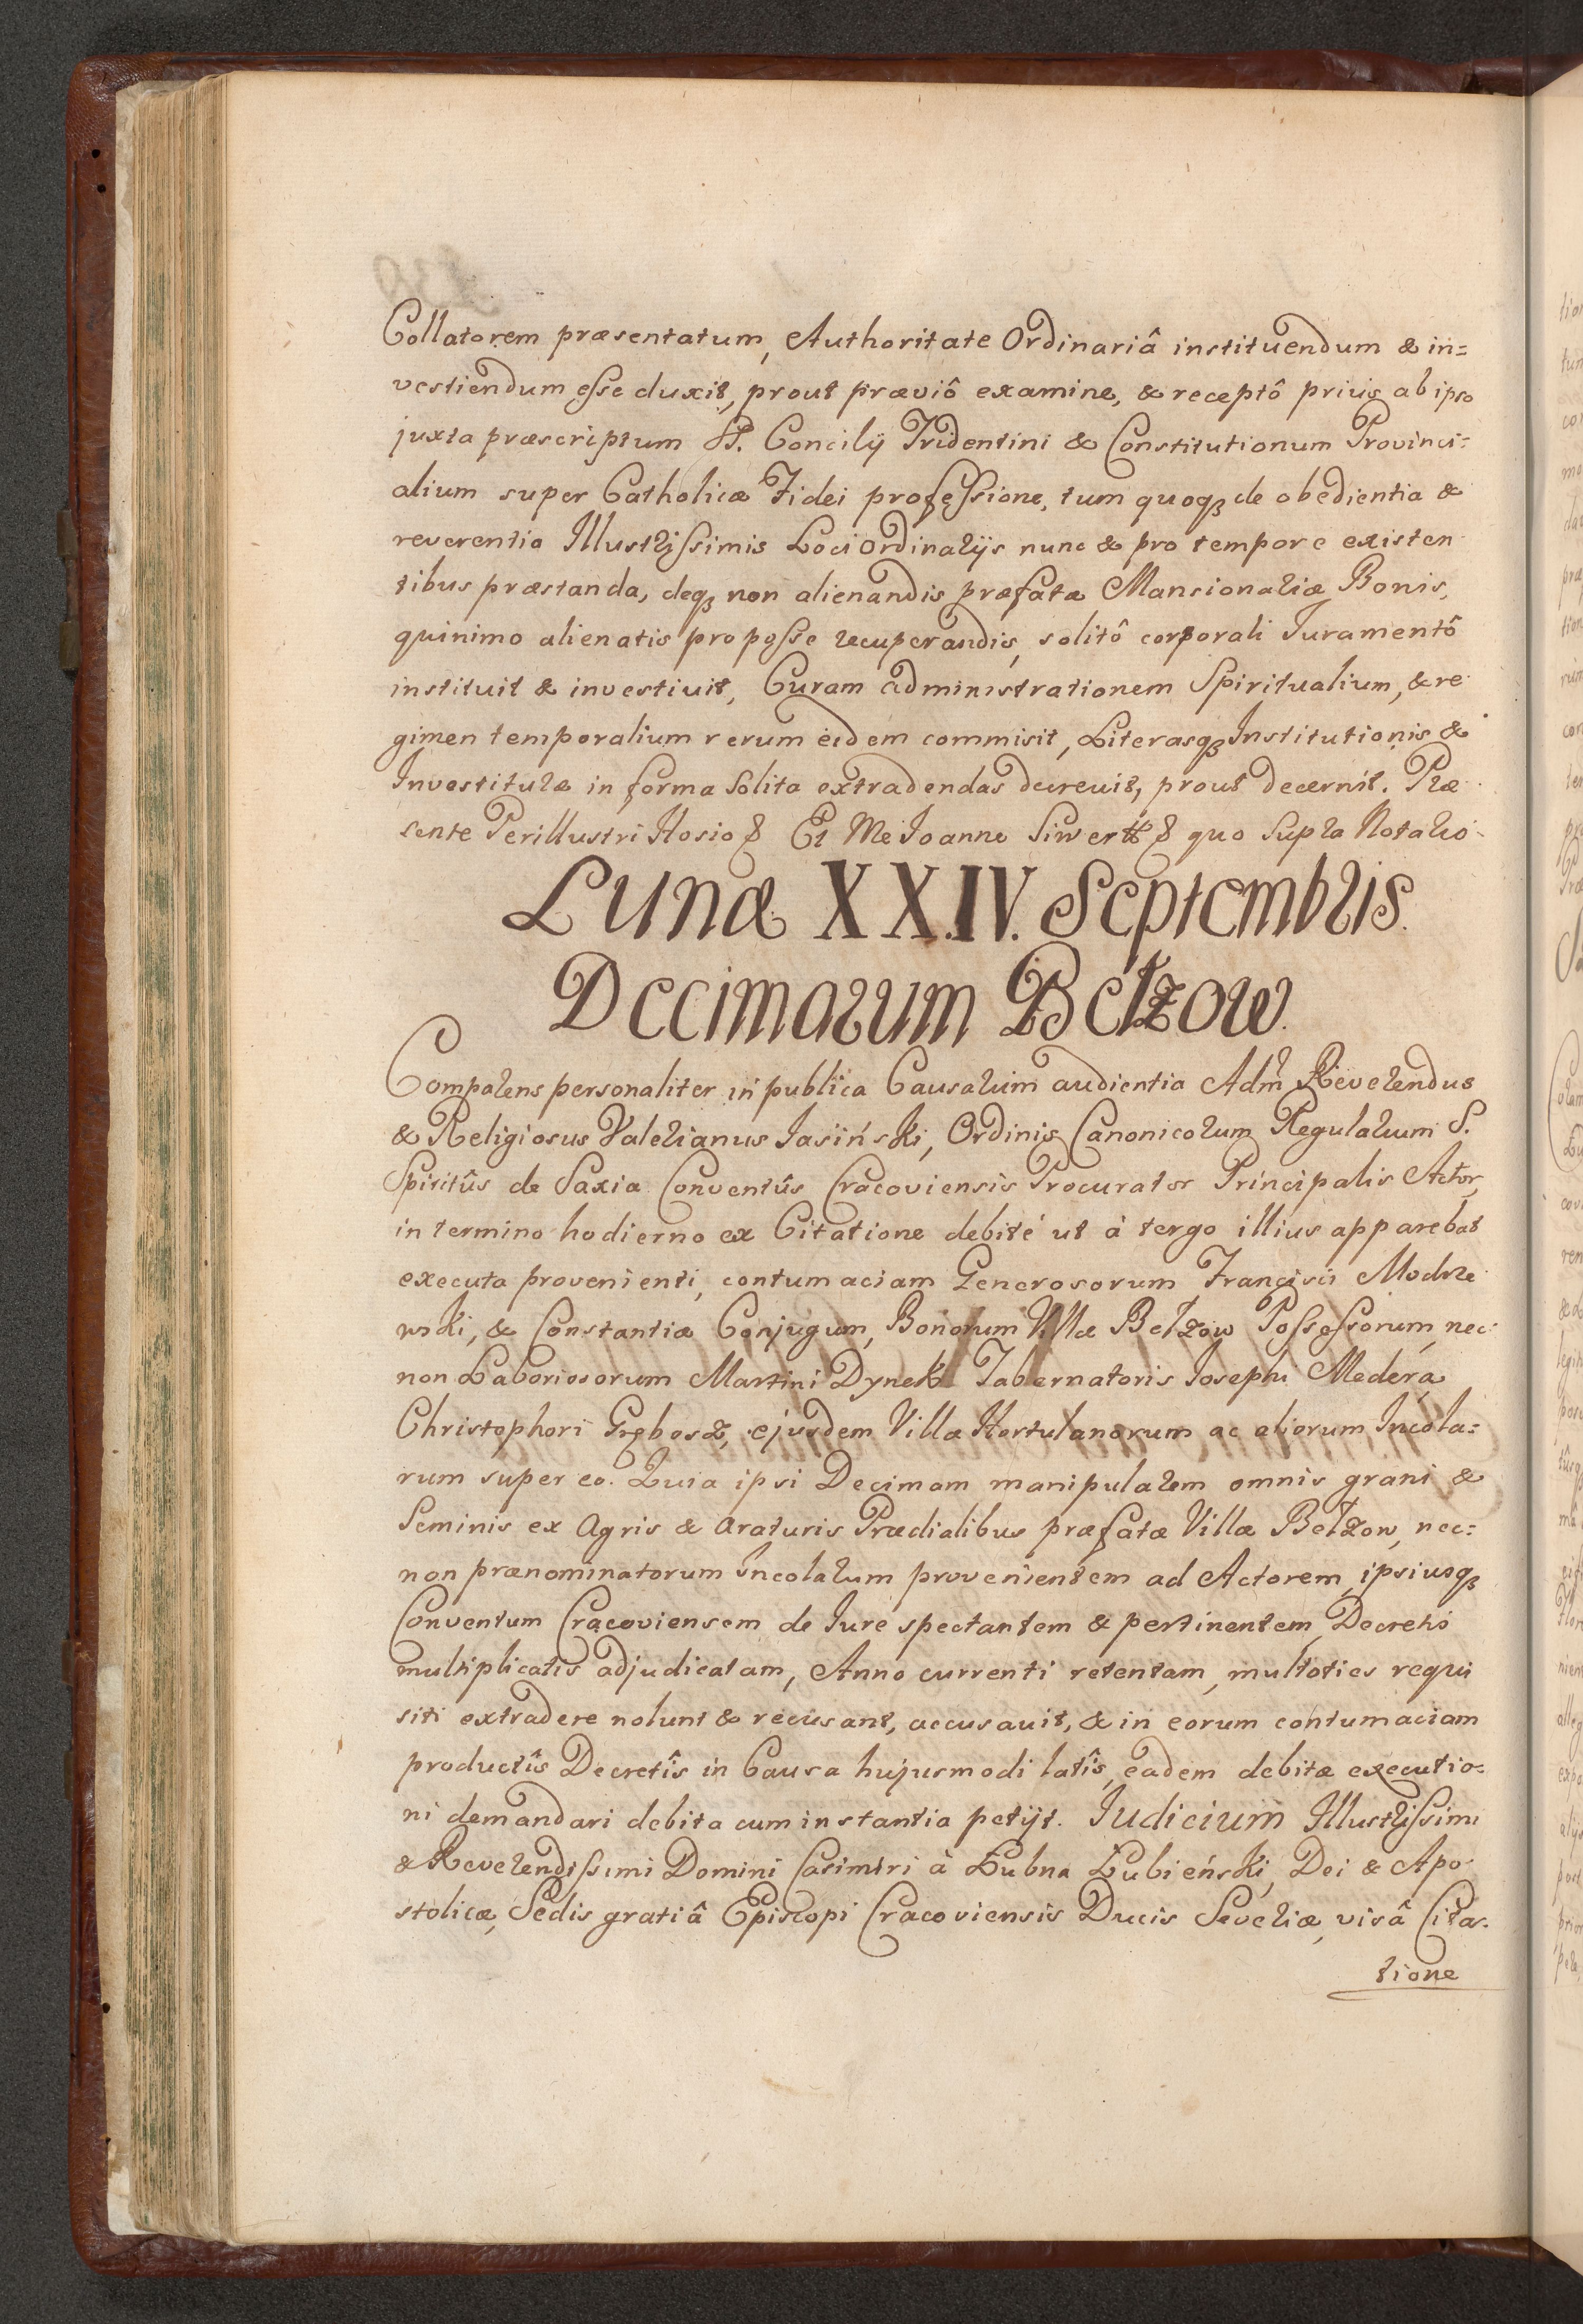 Collatorem præsentatum, Authoritate Ordinariâ instituendum & in=
vestiendum esse duxit, prout præviô examine, & receptô priùs ab ipso
juxta præscriptum SS. Concilij Tridentini & Constitutionum Provinci=
alium super Catholicæ Fidei professione, tum quoqȝ de obedientia &
reverentia Illustrissimis Loci Ordinarijs nunc & pro tempore existen
tibus præstanda, deqȝ non alienandis præfatæ Mansionariæ Bonis,
quinimo alienatis pro posse recuperandis, solitô corporali Juramentô
instituit & investivit, Curam administrationem Spiritualium, & re
gimen temporalium rerum eidem commisit, Literasqȝ Institutionis &
Investituræ in forma solita extradendas decrevit, prout decernit. Præ
sente Perillustri Hosio Et Me Joanne Siwert quo supra Notario
Lunæ XX.IV. Septembris.
Decimarum Betzow.
Comparens personaliter in publica Causarum audientia Adm̃ Reverendus
& Religiosus Valerianus Jasiński, Ordinis Canonicorum Regularium S.
Spiritûs de Saxia Conventûs Cracoviensis Procurator Principalis Actor,
in termino hodierno ex Citatione debité ut à tergo illius apparebat
executa provenienti, contumaciam Generosorum Francisci Modrze
wski, & Constantiæ Conjugum, Bonorum Villæ Betzow Possessorum, nec
non Laboriosorum Martini Dynek Tabernatoris Josephi Medera
Christophori Grębosz, ejusdem Villæ Hortulanorum ac aliorum Incola=
rum super eo. Quia ipsi Decimam manipularem omnis grani &
Seminis ex Agris & Araturis Prædialibus præfatæ Villæ Betzow, nec=
non prænominatorum Incolarum provenientem ad Actorem, ipsiusqȝ
Conventum Cracoviensem de Jure spectantem & pertinentem, Decretis
multiplicatis adjudicatam, Anno currenti retentam, multoties requi
siti extradere nolunt & recusant, accusavit, & in eorum contumaciam
productîs Decretîs in Causa hujusmodi latîs, eadem debitæ executio=
ni demandari debita cum instantia petijt. Judicium Illustrissimi
& Reverendissimi Domini Casimiri à Łubna Łubieński, Dei & Apo
stolicæ, Sedis gratiâ Episcopi Cracoviensis Ducis Severiæ, visâ Cita=
tione